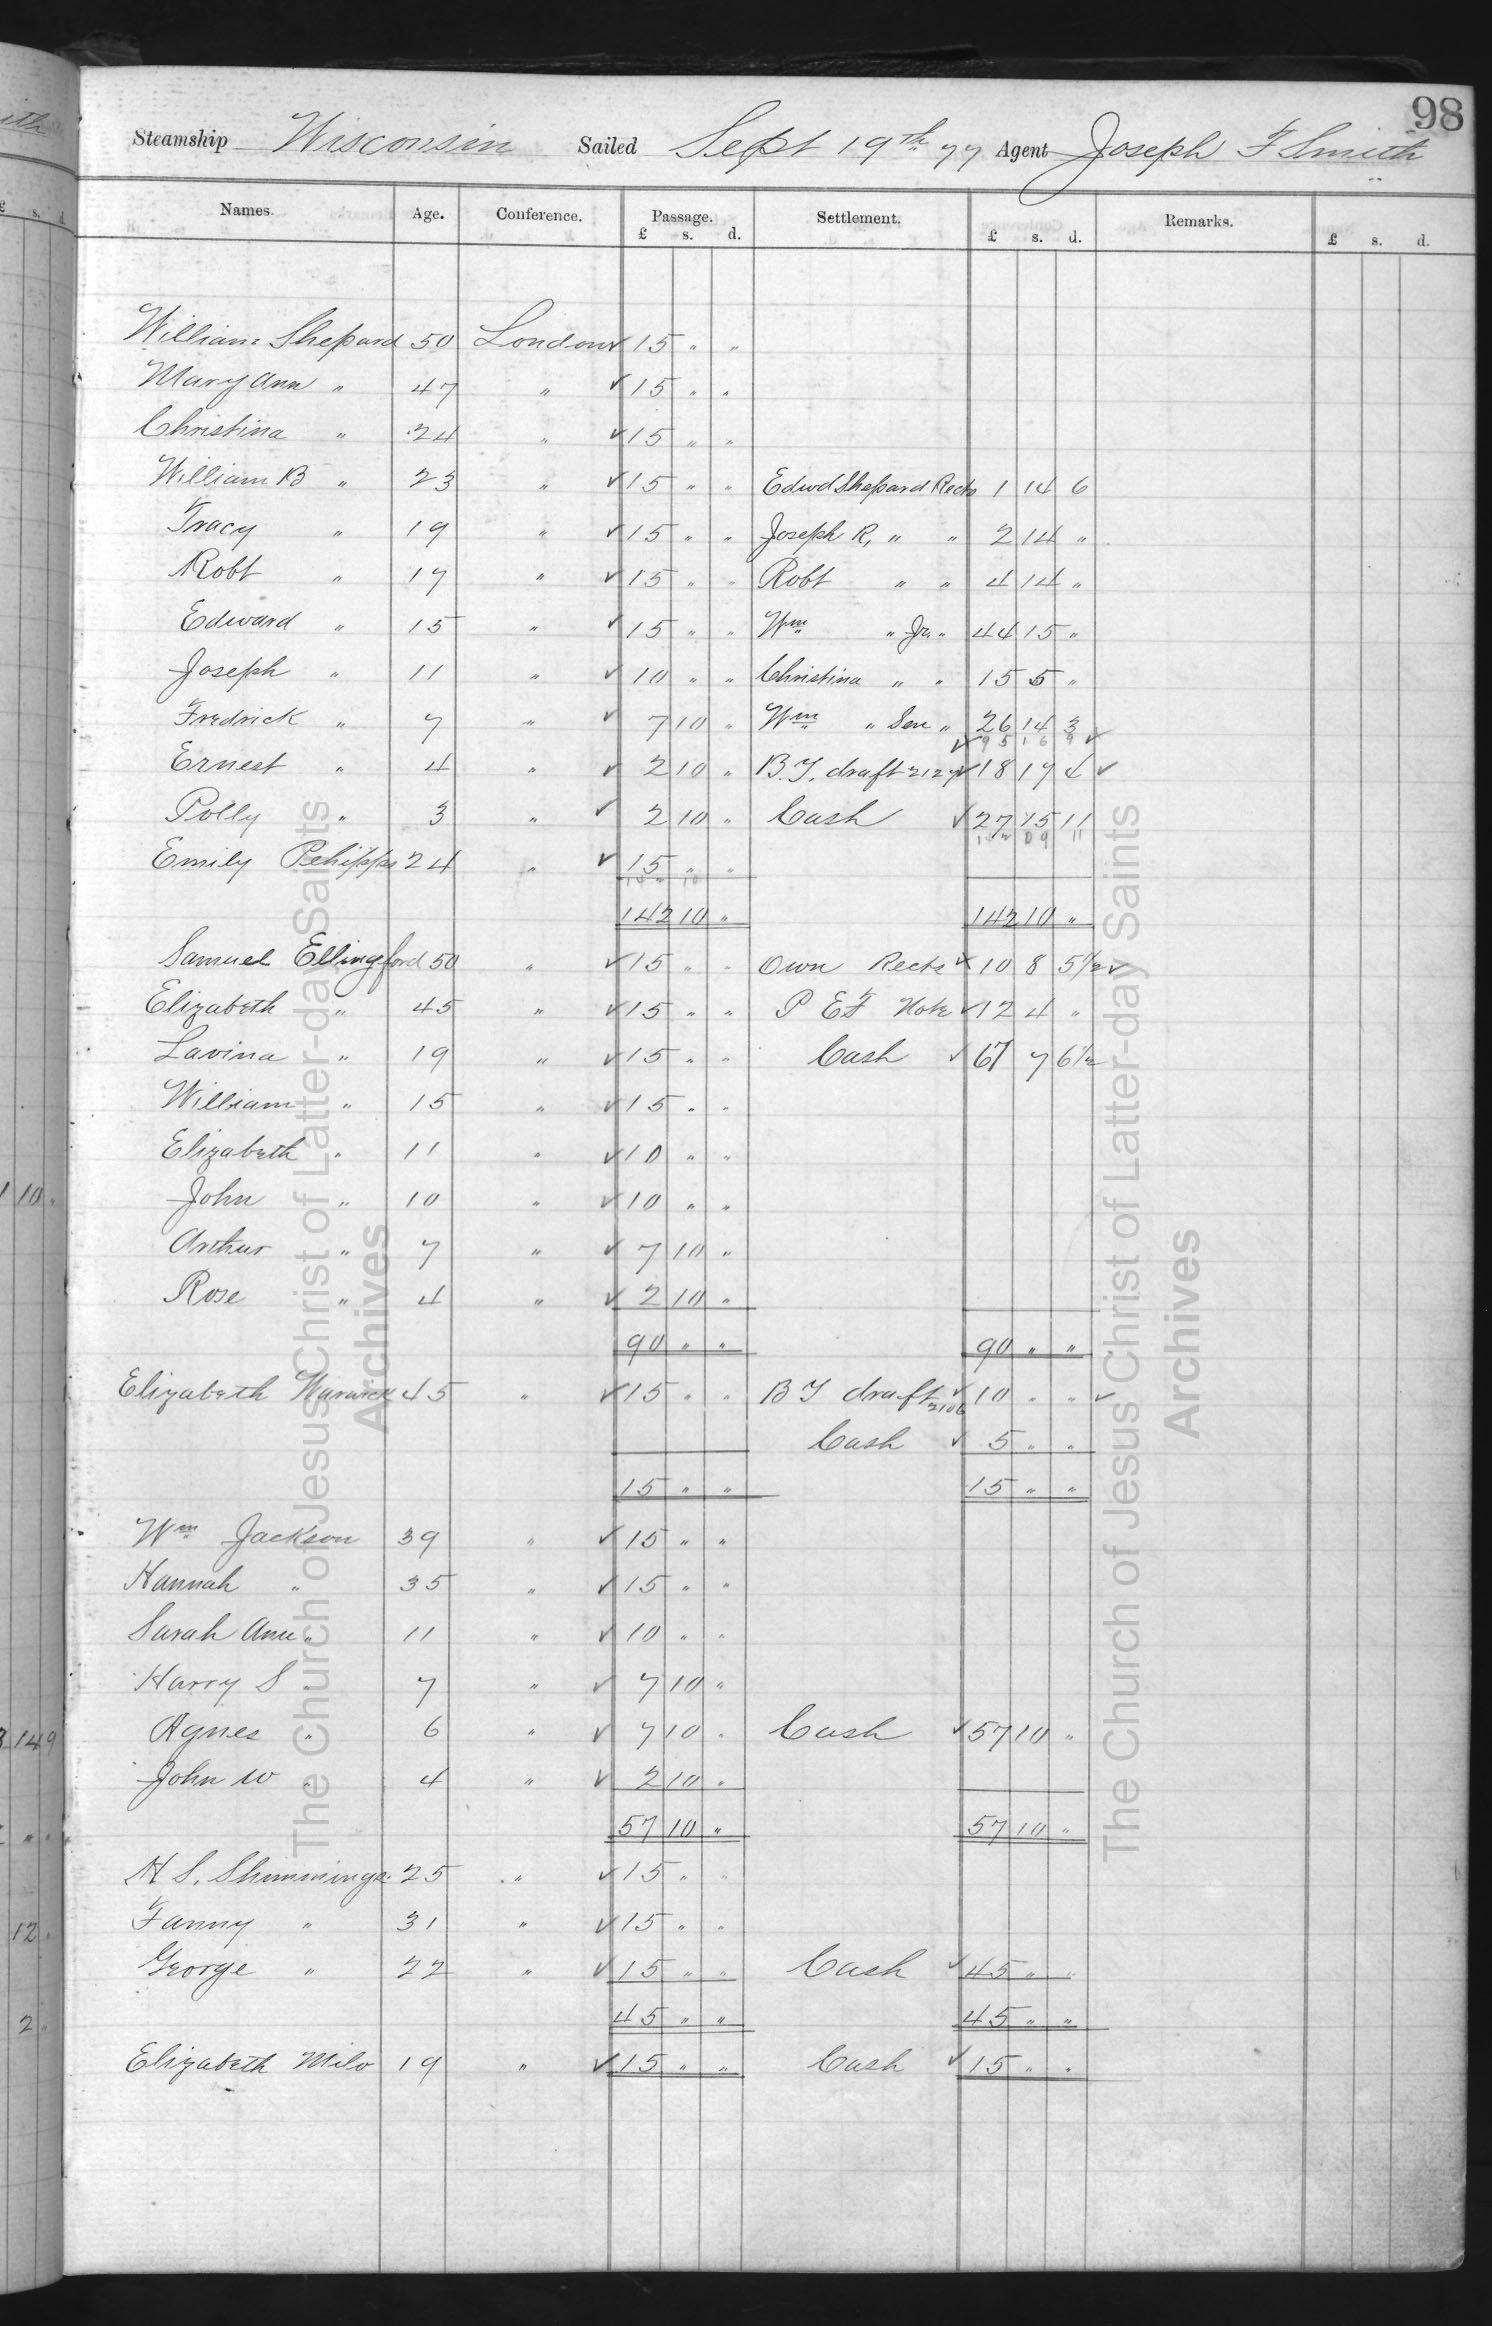 98
Steamship Wisconsin Sailed Sept 19th 77 Agent Joseph F Smith
Names. Age. Conference. Passage. Settlement. Remarks.
£ s. d. £ s. d. £ s. d.
William Shepard 50 London ✓ 15 " "
Mary Ann " 47 " ✓ 15 " "
Christina " 24 " ✓ 15 " "
William B " 23 " ✓ 15 " " Edwd Shepard Rects 1 14 6
Tracy " 19 " ✓ 15 " " Joseph R, " " 2 14 "
Robt " 17 " ✓ 15 " " Robt " " 4 14 "
Edward " 15 " ✓ 15 " " Wm " Jr. " 44 15 "
Joseph " 11 " ✓ 10 " " Christina " " 15 5 "
Fredrick " 7 " ✓ 7 10 " Wm " Sen " 26 14 3
✓ 95 16 9 ✓
Ernest " 4 " ✓ 2 10 " B.Y. draft 2127 ✓ 18 17 4 ✓
Polly " 3 " ✓ 2 10 " Cash ✓ 27 15 11
Emily Phipps 24 " ✓ 15 " "
142 10 " 142 10 "
Samuel Ellingford 50 " ✓ 15 " " Own Rects ✓ 10 8 5½ ✓
Elizabeth " 45 " ✓ 15 " " P E F Note ✓ 12 4 "
Lavina " 19 " ✓ 15 " " Cash ✓ 67 7 6½
William " 15 " ✓ 15 " "
Elizabeth " 11 " ✓ 10 " "
John " 10 " ✓ 10 " "
Arthur " 7 " ✓ 7 10 "
Rose " 4 " ✓ 2 10 "
90 " " 90 " "
Elizabeth Warwick 45 " ✓ 15 " " B Y draft 2106 ✓ 10 " " ✓
Cash ✓ 5 " "
15 " " 15 " "
Wm Jackson 39 " ✓ 15 " "
Hannah " 35 " ✓ 15 " "
Sarah Ann " 11 " ✓ 10 " "
Harry S " 7 " ✓ 7 10 "
Agnes " 6 " ✓ 7 10 " Cash ✓ 57 10 "
John W " 4 " ✓ 2 10 "
57 10 " 57 10 "
H S. Shimmings 25 " ✓ 15 " "
Fanny " 31 " ✓ 15 " "
George " 22 " ✓ 15 " " Cash ✓ 45 " "
45 " " 45 " "
Elizabeth Milo 19 " ✓ 15 " " Cash ✓ 15 " "
The Church of Jesus Christ of Latter-day Saints
Archives
The Church of Jesus Christ of Latter-day Saints
Archives